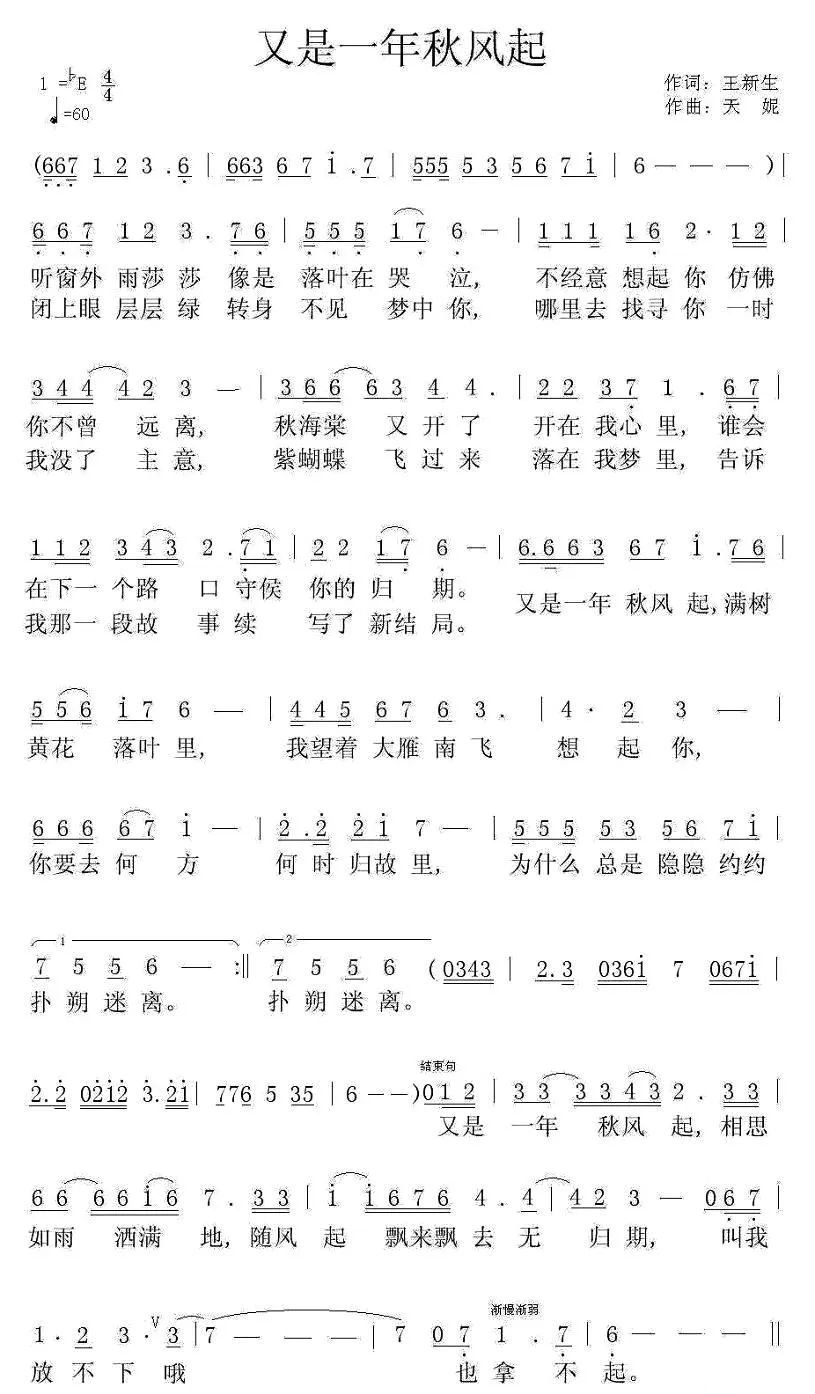 又是一年秋风起
1=♭E 4/4
♩=60
作词：王新生
作曲：天 妮
(667 1 2 3 .6 | 663 6 7 i .7 | 555 5 3 5 6 7 i | 6 — — — )|
6 6 7 1 2 3 . 7 6 | 5 5 5 1 7 6 — | 1 1 1 1 6 2· 1 2 |
听窗外 雨莎 莎 像是 落叶在 哭 泣, 不经意 想起 你 仿佛
闭上眼 层层 绿 转身 不见 梦中 你, 哪里去 找寻 你 一时
3 4 4 4 2 3 — | 3 6 6 6 3 4 4 . | 2 2 3 7 1 . 6 7 |
你不曾 远 离, 秋海棠 又 开 了 开在 我心 里, 谁会
我没了 主 意, 紫蝴蝶 飞 过 来 落在 我梦 里, 告诉
1 1 2 3 4 3 2 . 7 1 | 2 2 1 7 6 — | 6.6 6 3 6 7 i .7 6 |
在下一 个路 口 守侯 你的 归 期。 又是一年 秋风 起,满树
我那一 段故 事 续 写了 新结 局。
5 5 6 i 7 6 — | 4 4 5 6 7 6 3 . | 4 · 2 3 — |
黄花 落叶 里, 我望着 大雁 南 飞 想 起 你,
6 6 6 6 7 i — | 2.2 2 i 7 — | 5 5 5 5 3 5 6 7 i |
你要去 何 方 何 时 归故 里, 为什么 总是 隐隐 约约
1 2
7 5 5 6 — :‖ 7 5 5 6 (0343 | 2.3 036i 7 067i |
扑 朔 迷 离。 扑 朔 迷 离。
结束句
2.2 02i2 3.2i | 776 5 35 | 6 — — )0 1 2 | 3 3 3 3 4 3 2 . 3 3 |
又是 一年 秋风 起, 相思
6 6 6 6 i 6 7 . 3 3 | i i 6 7 6 4 . 4 | 4 2 3 — 0 6 7 |
如雨 洒满 地, 随风 起 飘来飘 去 无 归 期, 叫我
渐慢渐弱
1 · 2 3 · V 3 | 7 — — — | 7 0 7 1 . 7 | 6 — — ‖
放 不 下 哦 也 拿 不 起。